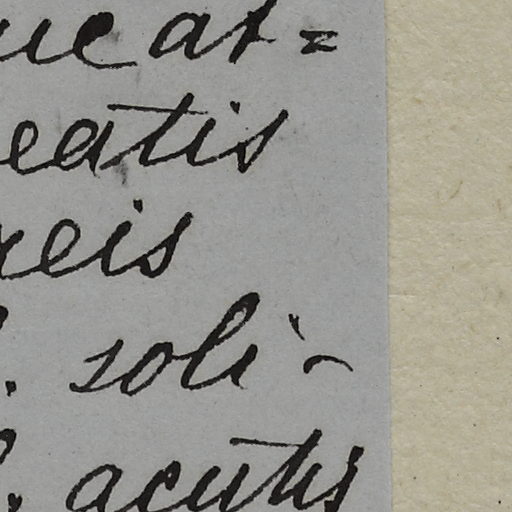 que at=
eatis
neis
. soli-
. acutis